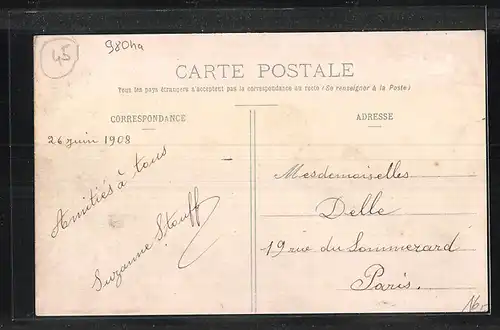 45
980ha
CARTE POSTALE
Tous les pays étrangers n'acceptent pas la correspondance au recto (Se renseigner à la Poste)
CORRESPONDANCE
ADRESSE
26 juin 1908
Amitiés à tous
Suzanne Stouff
Mesdemoiselles
Delle
19 rue du Sommerard
Paris.
16,-